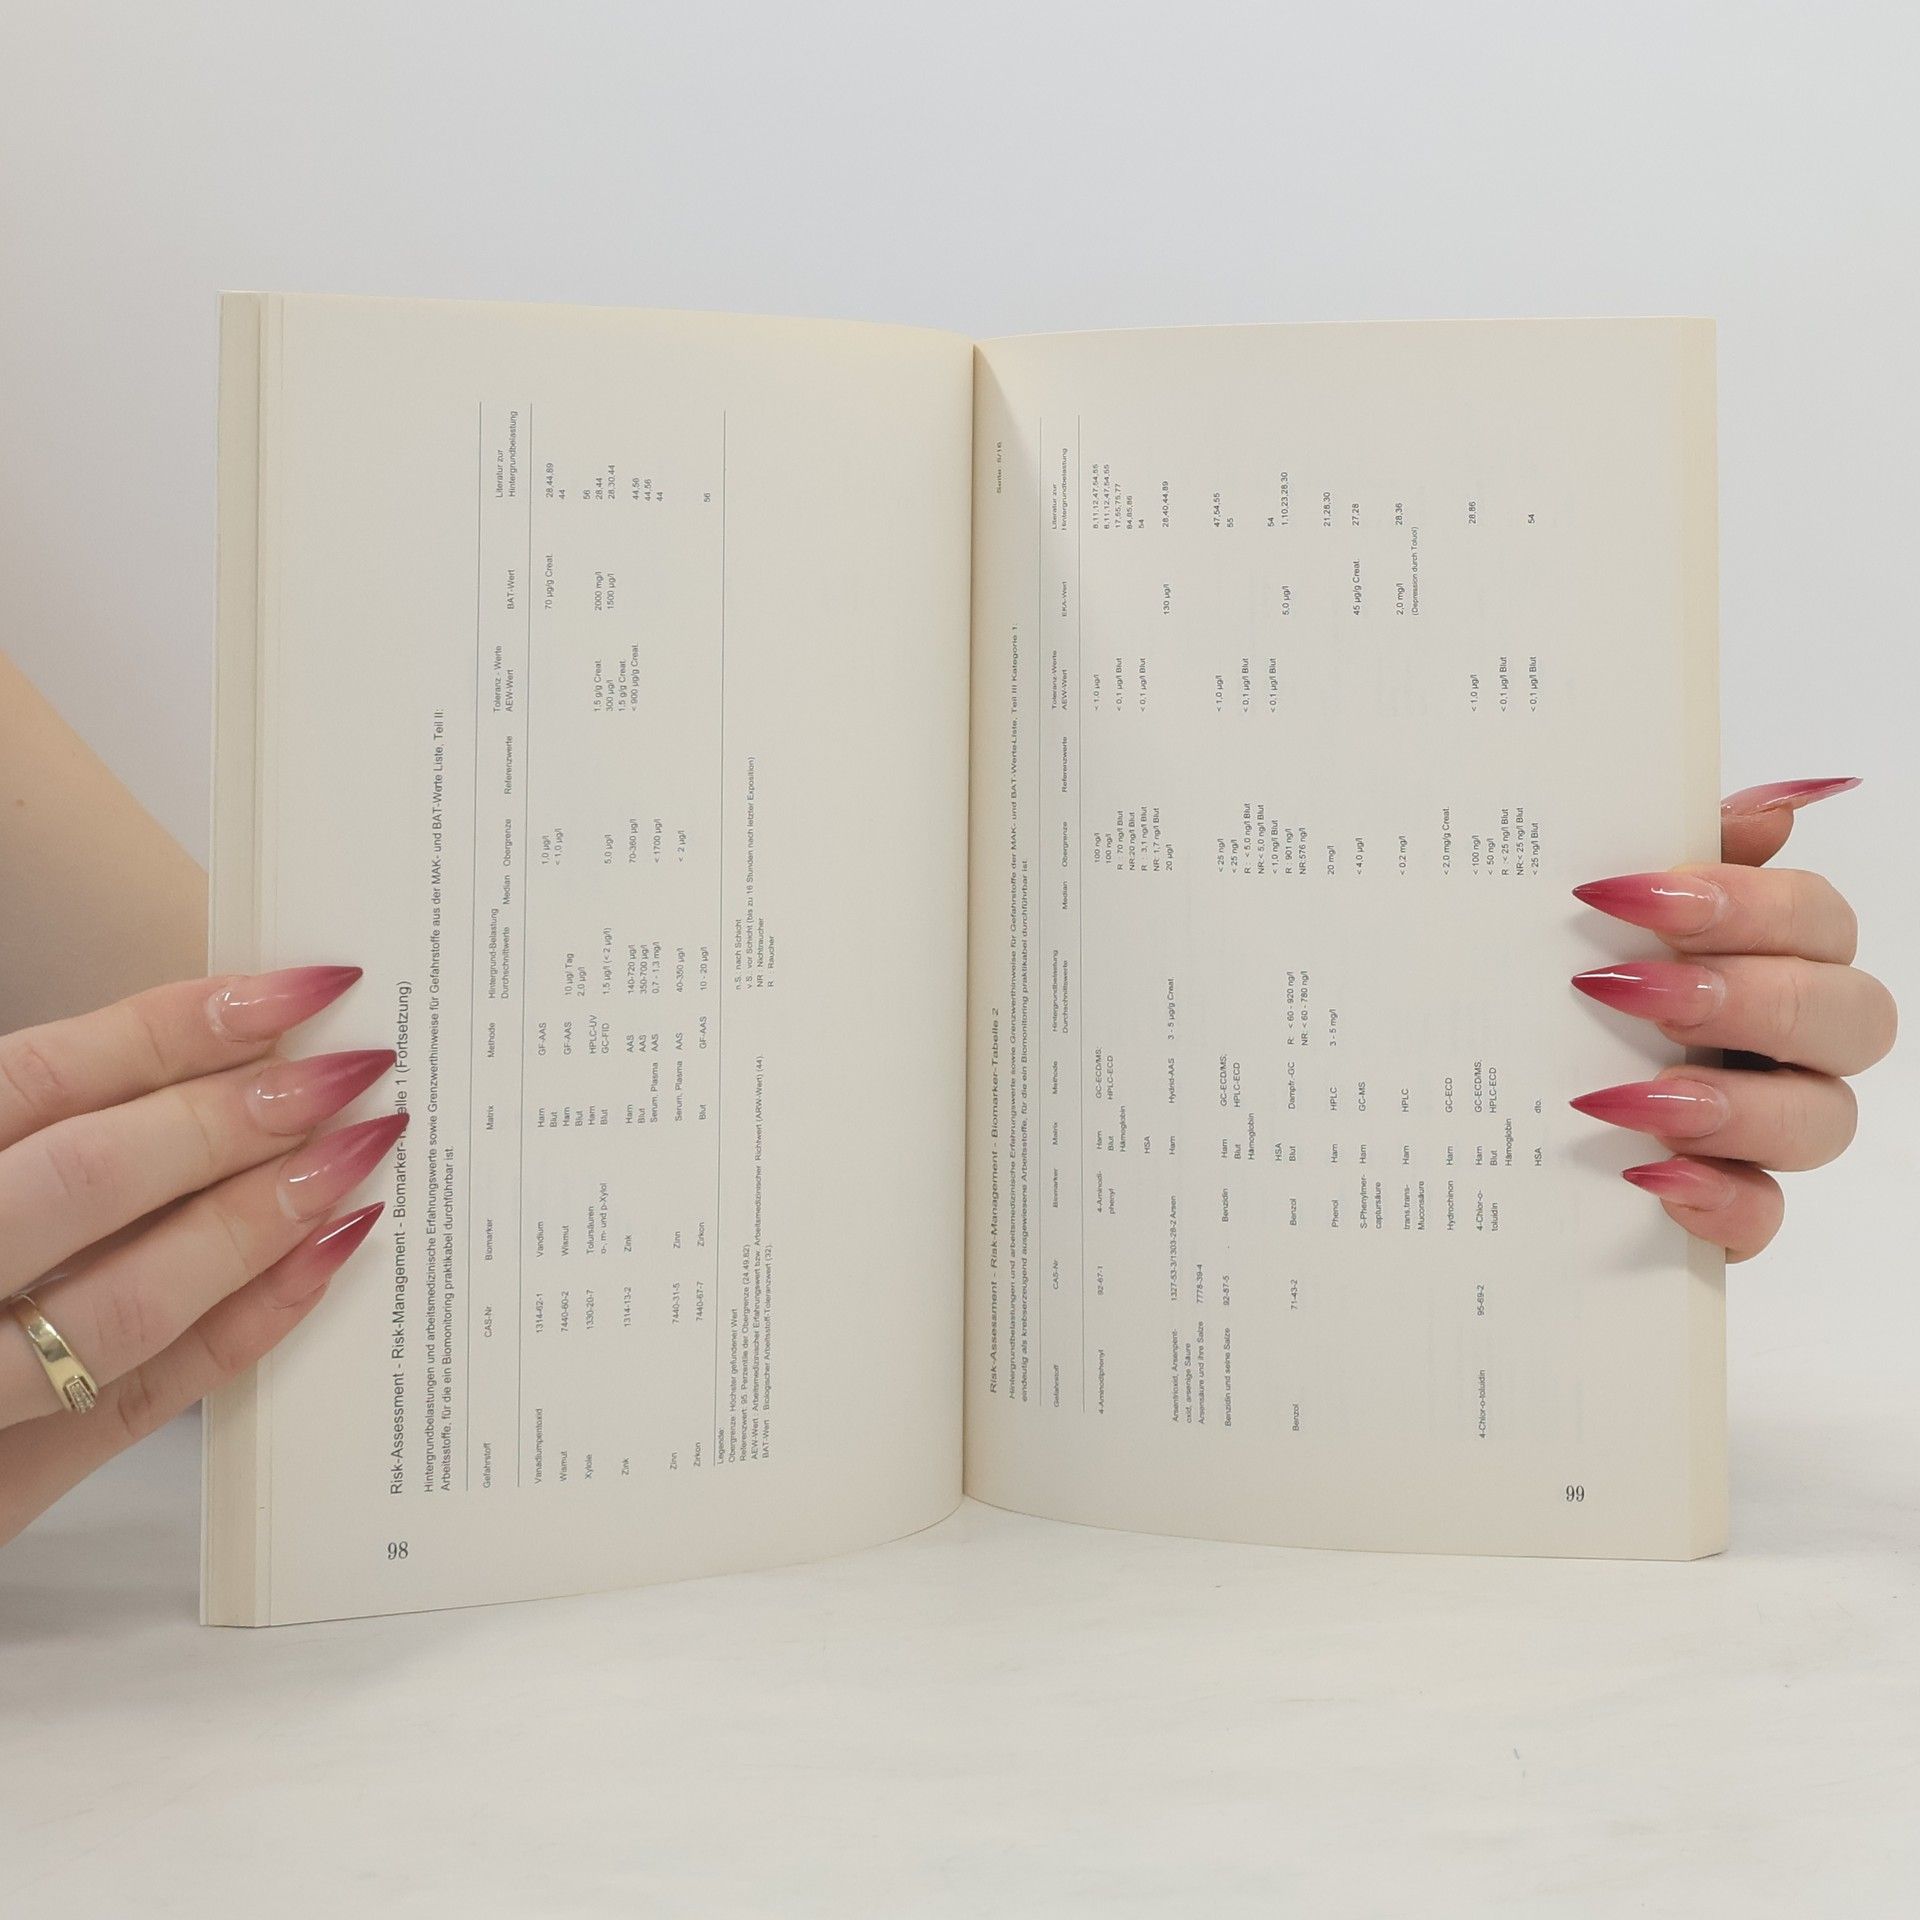 98
Risk-Assessment - Risk-Management - Biomarker- elle 1 (Fortsetzung)
Hintergrundbelastungen und arbeitsmedizinische Erfahrungswerte sowie Grenzwerthinweise für Gefahrstoffe aus der MAK- und BAT-Werte Liste, Teil II:
Arbeitsstoffe, für die ein Biomonitoring praktikabel durchführbar ist.
Hintergrund-Belastung Toleranz - Werte Literatur zur
Gefahrstoff CAS-Nr Biomarker Matrix Methode Durchschnittwerte Median Obergrenze Referenzwerte AEW-Wert BAT-Wert Hintergrundbelastung
Vanadiumpentoxid 1314-62-1 Vandium Harn GF-AAS 1,0 µg/l 70 µg/g Creat. 28,44,89
Blut < 1,0 µg/l 44
Wismut 7440-60-2 Wismut Harn GF-AAS 10 µg/ Tag
Blut 2,0 µg/l
Xylole 1330-20-7 Tolursäuren Harn HPLC-UV 1,5 g/g Creat. 2000 mg/l 28,44
o-, m- und p-Xylol Blut GC-FID 1,5 µg/l (< 2 µg/l) 5,0 µg/l 300 µg/l 1500 µg/l 28,30,44
56
1,5 g/g Creat.
Zink 1314-13-2 Zink Harn AAS 140-720 µg/l 70-360 µg/l < 900 µg/g Creat. 44,56
Blut AAS 350-700 µg/l 44,56
Serum, Plasma AAS 0,7 - 1,3 mg/l < 1700 µg/l 44
Zinn 7440-31-5 Zinn Serum, Plasma AAS 40-350 µg/l < 2 µg/l
Zirkon 7440-67-7 Zirkon Blut GF-AAS 10 - 20 µg/l 56
Legende:
Obergrenze: Höchster gefundener Wert n.S.: nach Schicht
Referenzwert: 95. Perzentile der Obergrenze (24,49,82) v.S.: vor Schicht (bis zu 16 Stunden nach letzter Exposition)
AEW-Wert : Arbeitsmedizinischer Erfahrungswert bzw. Arbeitsmedizinischer Richtwert (ARW-Wert) (44). NR : Nichtraucher
BAT-Wert : Biologischer Arbeitsstoff-Toleranzwert (32). R : Raucher
Risk-Assessment - Risk-Management - Biomarker-Tabelle 2
Hintergrundbelastungen und arbeitsmedizinische Erfahrungswerte sowie Grenzwerthinweise für Gefahrstoffe der MAK- und BAT-Werte-Liste, Teil III Kategorie 1:
eindeutig als krebserzeugend ausgewiesene Arbeitsstoffe, für die ein Biomonitoring praktikabel durchführbar ist.
Hintergrundbelastung Toleranz-Werte Literatur zur
Gefahrstoff CAS-Nr Biomarker Matrix Methode Durchschnittswerte Median Obergrenze Referenzwerte AEW-Wert EKA-Wert Hintergrundbelastung
4-Aminodiphenyl 92-67-1 4-Aminodi- Harn GC-ECD/MS; 100 ng/l < 1,0 µg/l 8,11,12,47,54,55
phenyl Blut HPLC-ECD 100 ng/l 8,11,12,47,54,55
Hämoglobin R : 70 ng/l Blut < 0,1 µg/l Blut 17,55,75,77
NR:20 ng/l Blut 84,85,86
HSA R : 3,1 ng/l Blut < 0,1 µg/l Blut 54
NR: 1,7 ng/l Blut
Arsentrioxid, Arsenpent- 1327-53-3/1303-28-2 Arsen Harn Hydrid-AAS 3 - 5 µg/g Creat. 20 µg/l 130 µg/l 28,40,44,89
oxid, arsenige Säure
Arsensäure und ihre Salze 7778-39-4
Benzidin und seine Salze 92-87-5 Benzidin Harn GC-ECD/MS; < 25 ng/l < 1,0 µg/l 47,54,55
Blut HPLC-ECD < 25 ng/l 55
Hämoglobin R : < 5,0 ng/l Blut < 0,1 µg/l Blut
NR:< 5,0 ng/l Blut
HSA < 1,0 ng/l Blut < 0,1 µg/l Blut 54
Benzol 71-43-2 Benzol Blut Dampfr.-GC R: < 60 - 920 ng/l R : 901 ng/l 5,0 µg/l 1,10,23,28,30
NR: < 60 - 780 ng/l NR:576 ng/l
Phenol Harn HPLC 3 - 5 mg/l 20 mg/l 21,28,30
S-Phenylmer- Harn GC-MS < 4,0 µg/l 45 µg/g Creat. 27,28
captursäure
trans,trans- Harn HPLC < 0,2 mg/l 2,0 mg/l 28,36
Muconsäure (Depression durch Toluol)
Hydrochinon Harn GC-ECD < 2,0 mg/g Creat.
4-Chlor-o-toluidin 95-69-2 4-Chlor-o- Harn GC-ECD/MS; < 100 ng/l < 1,0 µg/l 28,86
toluidin Blut HPLC-ECD < 50 ng/l
Hämoglobin R : < 25 ng/l Blut < 0,1 µg/l Blut
NR:< 25 ng/l Blut
HSA dto. < 25 ng/l Blut < 0,1 µg/l Blut 54
99